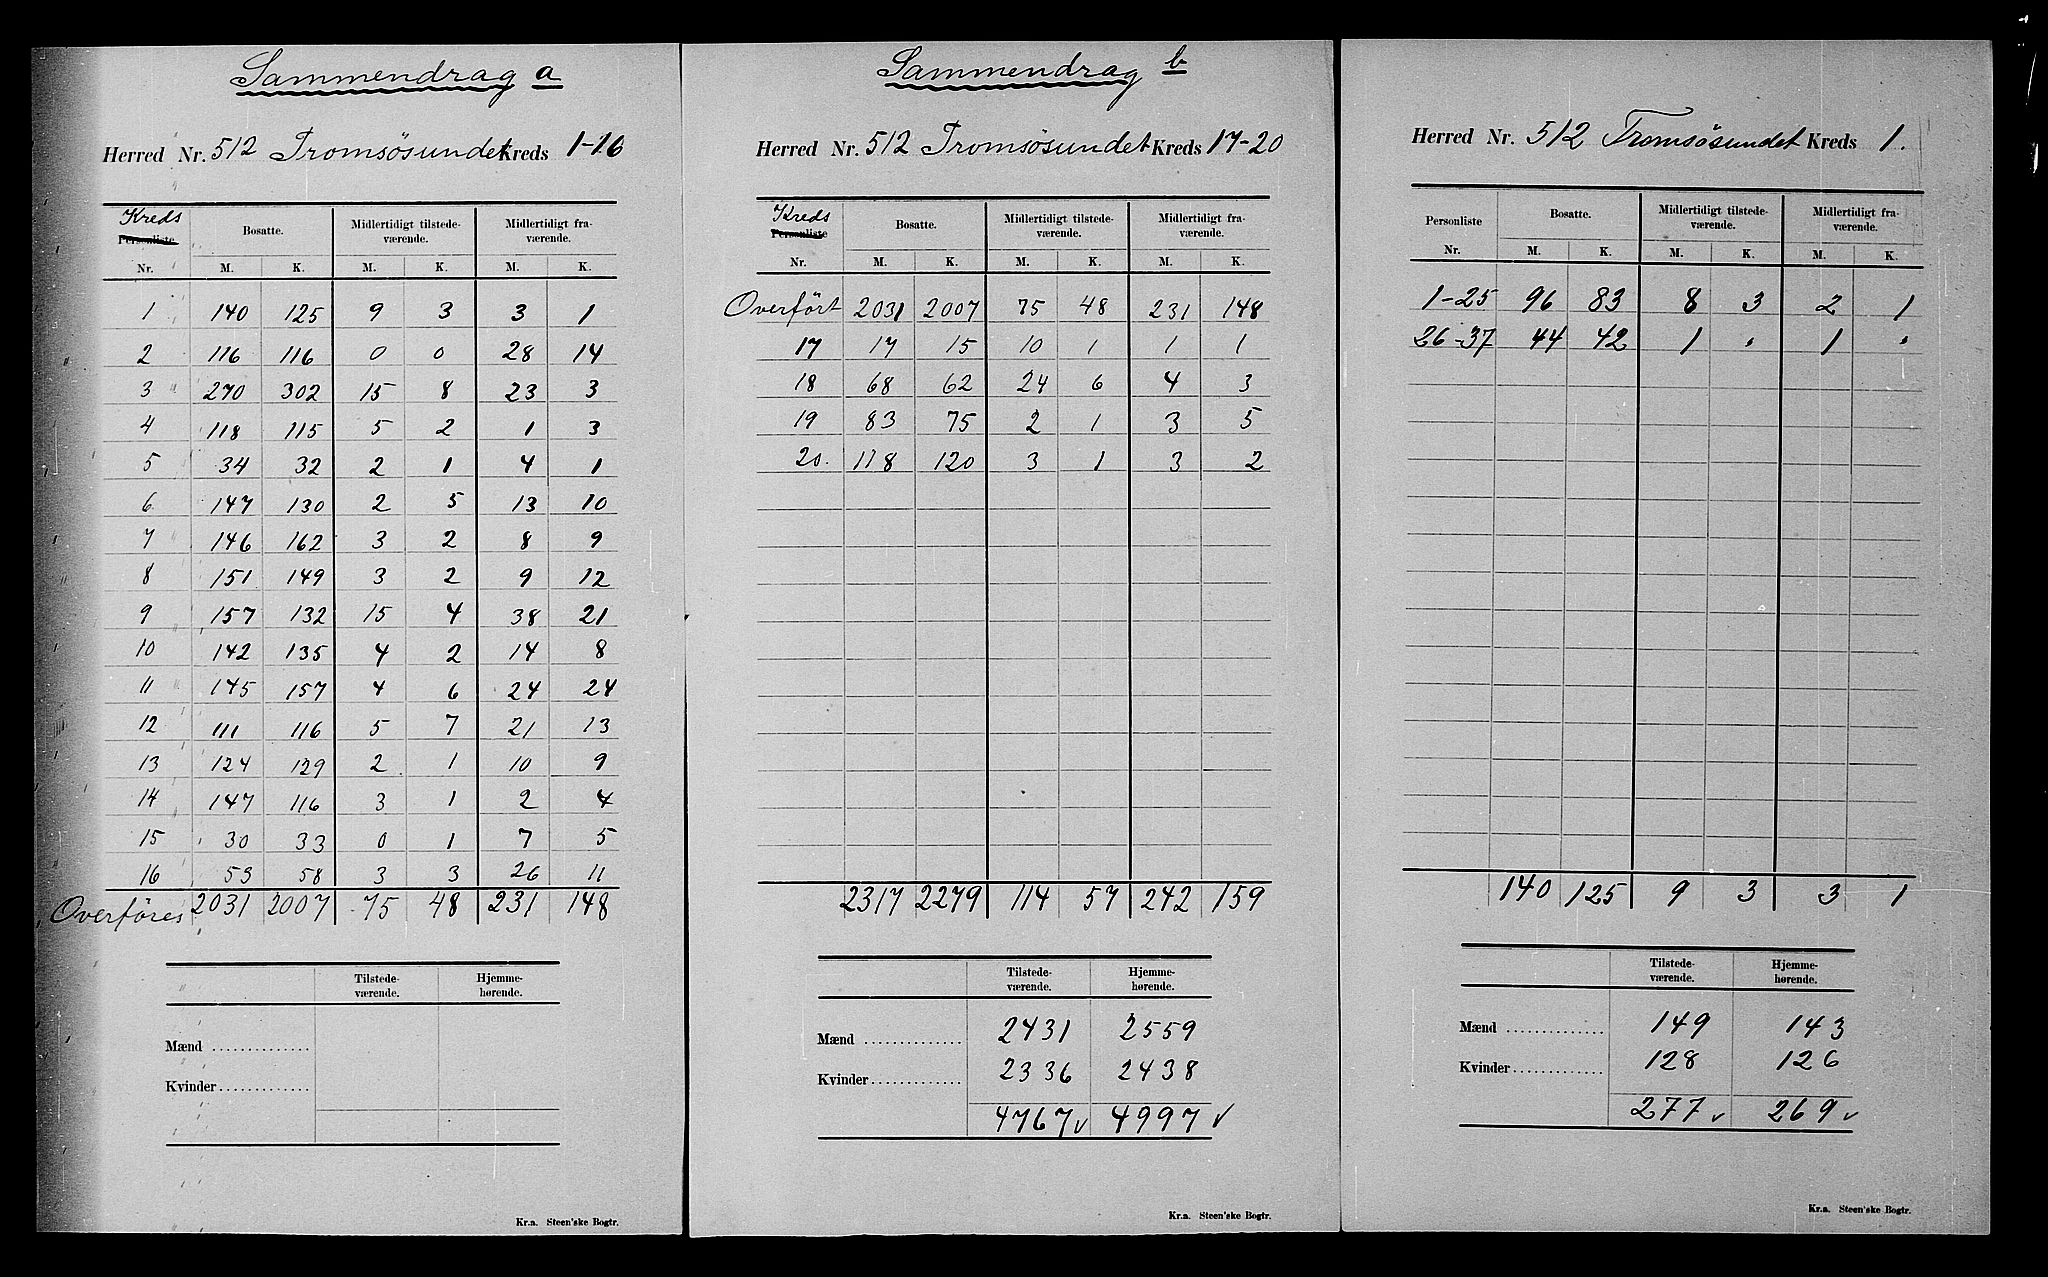 Sammendrag a
Herred Nr. 512 Tromsøsundet Kreds 1-16
Kreds
Personliste Bosatte. Midlertidigt tilstede- Midlertidigt fra-
værende. værende.
Nr. M. K. M. K. M. K.
1 140 125 9 3 3 1
2 116 116 0 0 28 14
3 270 302 15 8 23 3
4 118 115 5 2 1 3
5 34 32 2 1 4 1
6 147 130 2 5 13 10
7 146 162 3 2 8 9
8 151 149 3 2 9 12
9 157 132 15 4 38 21
10 142 135 4 2 14 8
11 145 157 4 6 24 24
12 111 116 5 7 21 13
13 124 129 2 1 10 9
14 147 116 3 1 2 4
15 30 33 0 1 7 5
16 53 58 3 3 26 11
Overføres 2031 2007 75 48 231 148
Tilstede- Hjemme-
værende. hørende.
Mænd
Kvinder
Kr.a. Steen'ske Bogtr.
Sammendrag b
Herred Nr. 512 Tromsøsundet Kreds 17-20
Kreds
Personliste Bosatte. Midlertidigt tilstede- Midlertidigt fra-
værende. værende.
Nr. M. K. M. K. M. K.
Overført 2031 2007 75 48 231 148
17 17 15 10 1 1 1
18 68 62 24 6 4 3
19 83 75 2 1 3 5
20. 118 120 3 1 3 2
2317 2279 114 57 242 159
Tilstede- Hjemme-
værende. hørende.
Mænd 2431 2559
Kvinder 2336 2438
4767 ✓ 4997 ✓
Kr.a. Steen'ske Bogtr.
Herred Nr. 512 Tromsøsundet Kreds 1.
Personliste Bosatte. Midlertidigt tilstede- Midlertidigt fra-
værende. værende.
Nr. M. K. M. K. M. K.
1-25 96 83 8 3 2 1
26-37 44 42 1 . 1 .
140 125 9 3 3 1
Tilstede- Hjemme-
værende. hørende.
Mænd 149 143
Kvinder 128 126
277 ✓ 269 ✓
Kr.a. Steen'ske Bogtr.